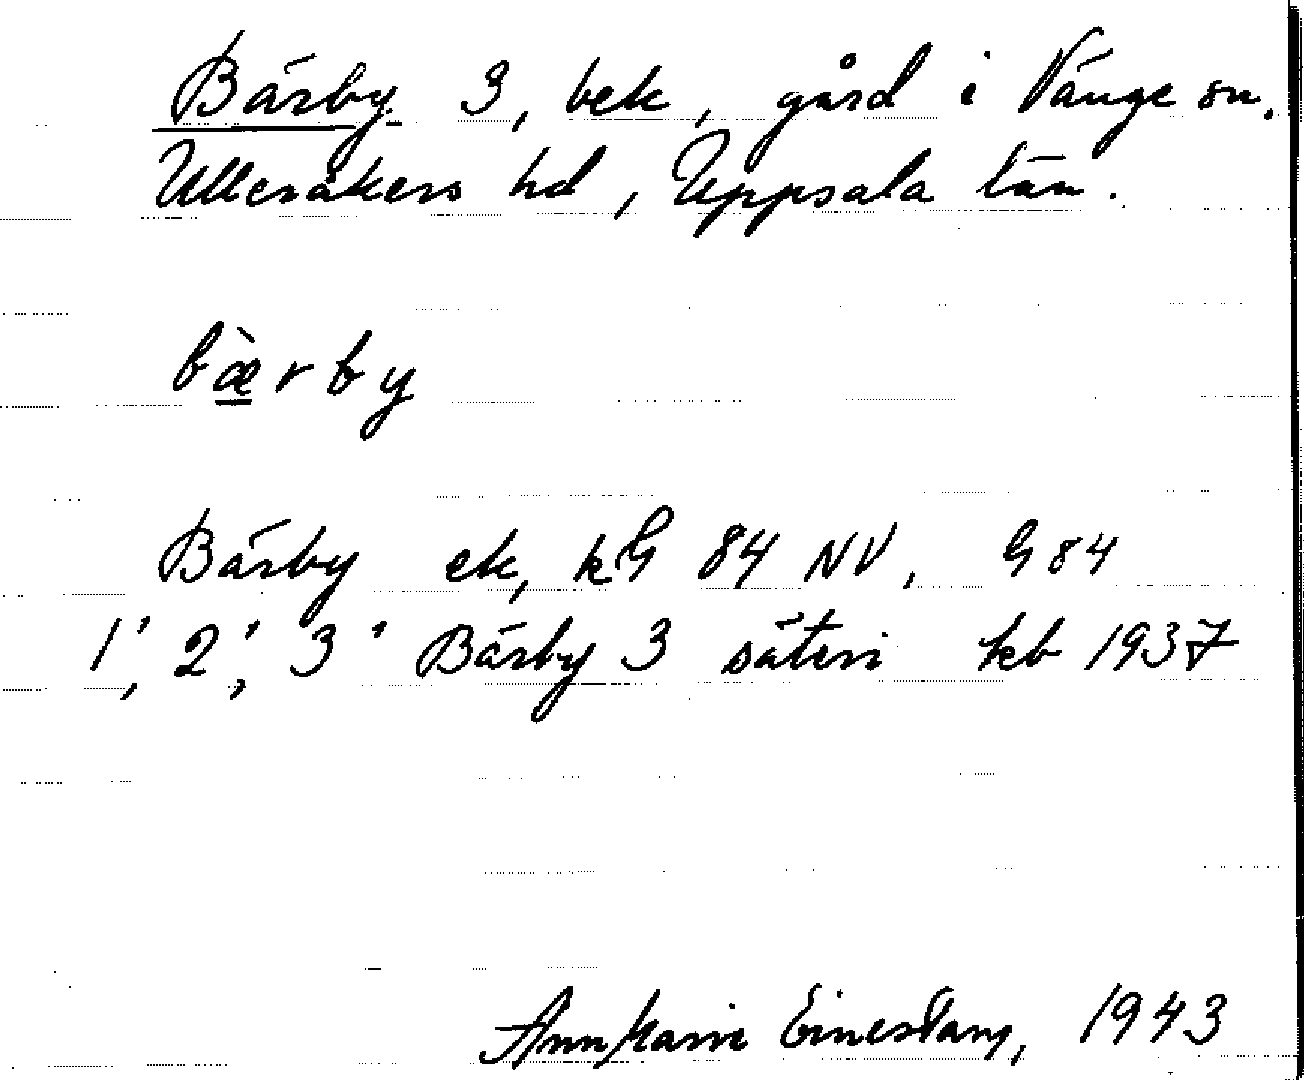 Bärby 3, bek, gård i Vänge sn.
Ulleråkers hd, Uppsala län.
bæ̀rby
Bärby ek, kG 84 NV, G 84
1', 2', 3' Bärby 3 säteri kb 1937
AnnMarie 1943